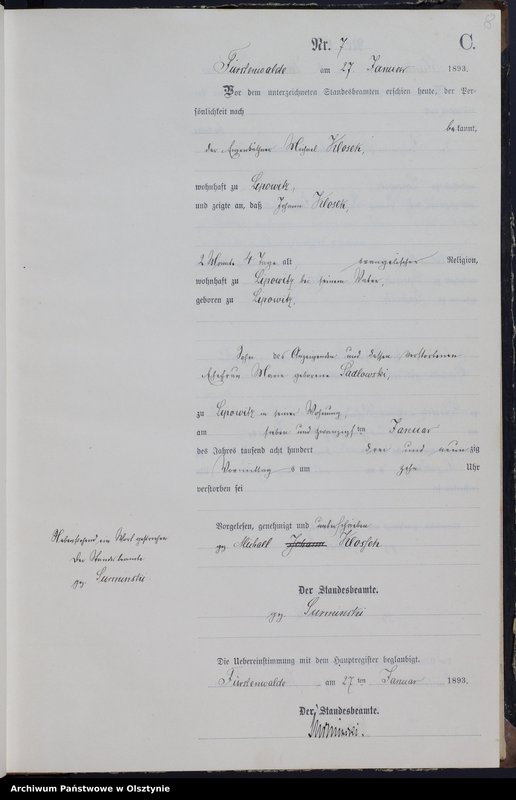 Nr. 7 C.
Fürstenwalde am 27. Januar 1893.
Vor dem unterzeichneten Standesbeamten erschien heute, der Per-
sönlichkeit nach
bekannt,
der Eigenkäthner Michael Klosek,
wohnhaft zu Lipowitz,
und zeigte an, daß Johann Klosek,
2 Monate 4 Tage alt, evangelischer Religion,
wohnhaft zu Lipowitz bei seinem Vater,
geboren zu Lipowitz,
Sohn des Anzeigenden und dessen verstorbenen
Ehefrau Marie geborene Sadlowski,
zu Lipowitz in seiner Wohnung,
am sieben und zwanzigsten Januar
des Jahres tausend acht hundert drei und neunzig
Vormittags um zehn Uhr
verstorben sei
Vorgelesen, genehmigt und unterschrieben
gz. Michall Johann Klossek
Nebenstehend ein Wort gestrichen
Der Standesbeamte
gz. Surminski
Der Standesbeamte.
gz. Surminski
Die Uebereinstimmung mit dem Hauptregister beglaubigt.
Fürstenwalde am 27ten Januar 1893.
Der Standesbeamte.
Surminski.
Archiwum Państwowe w Olsztynie